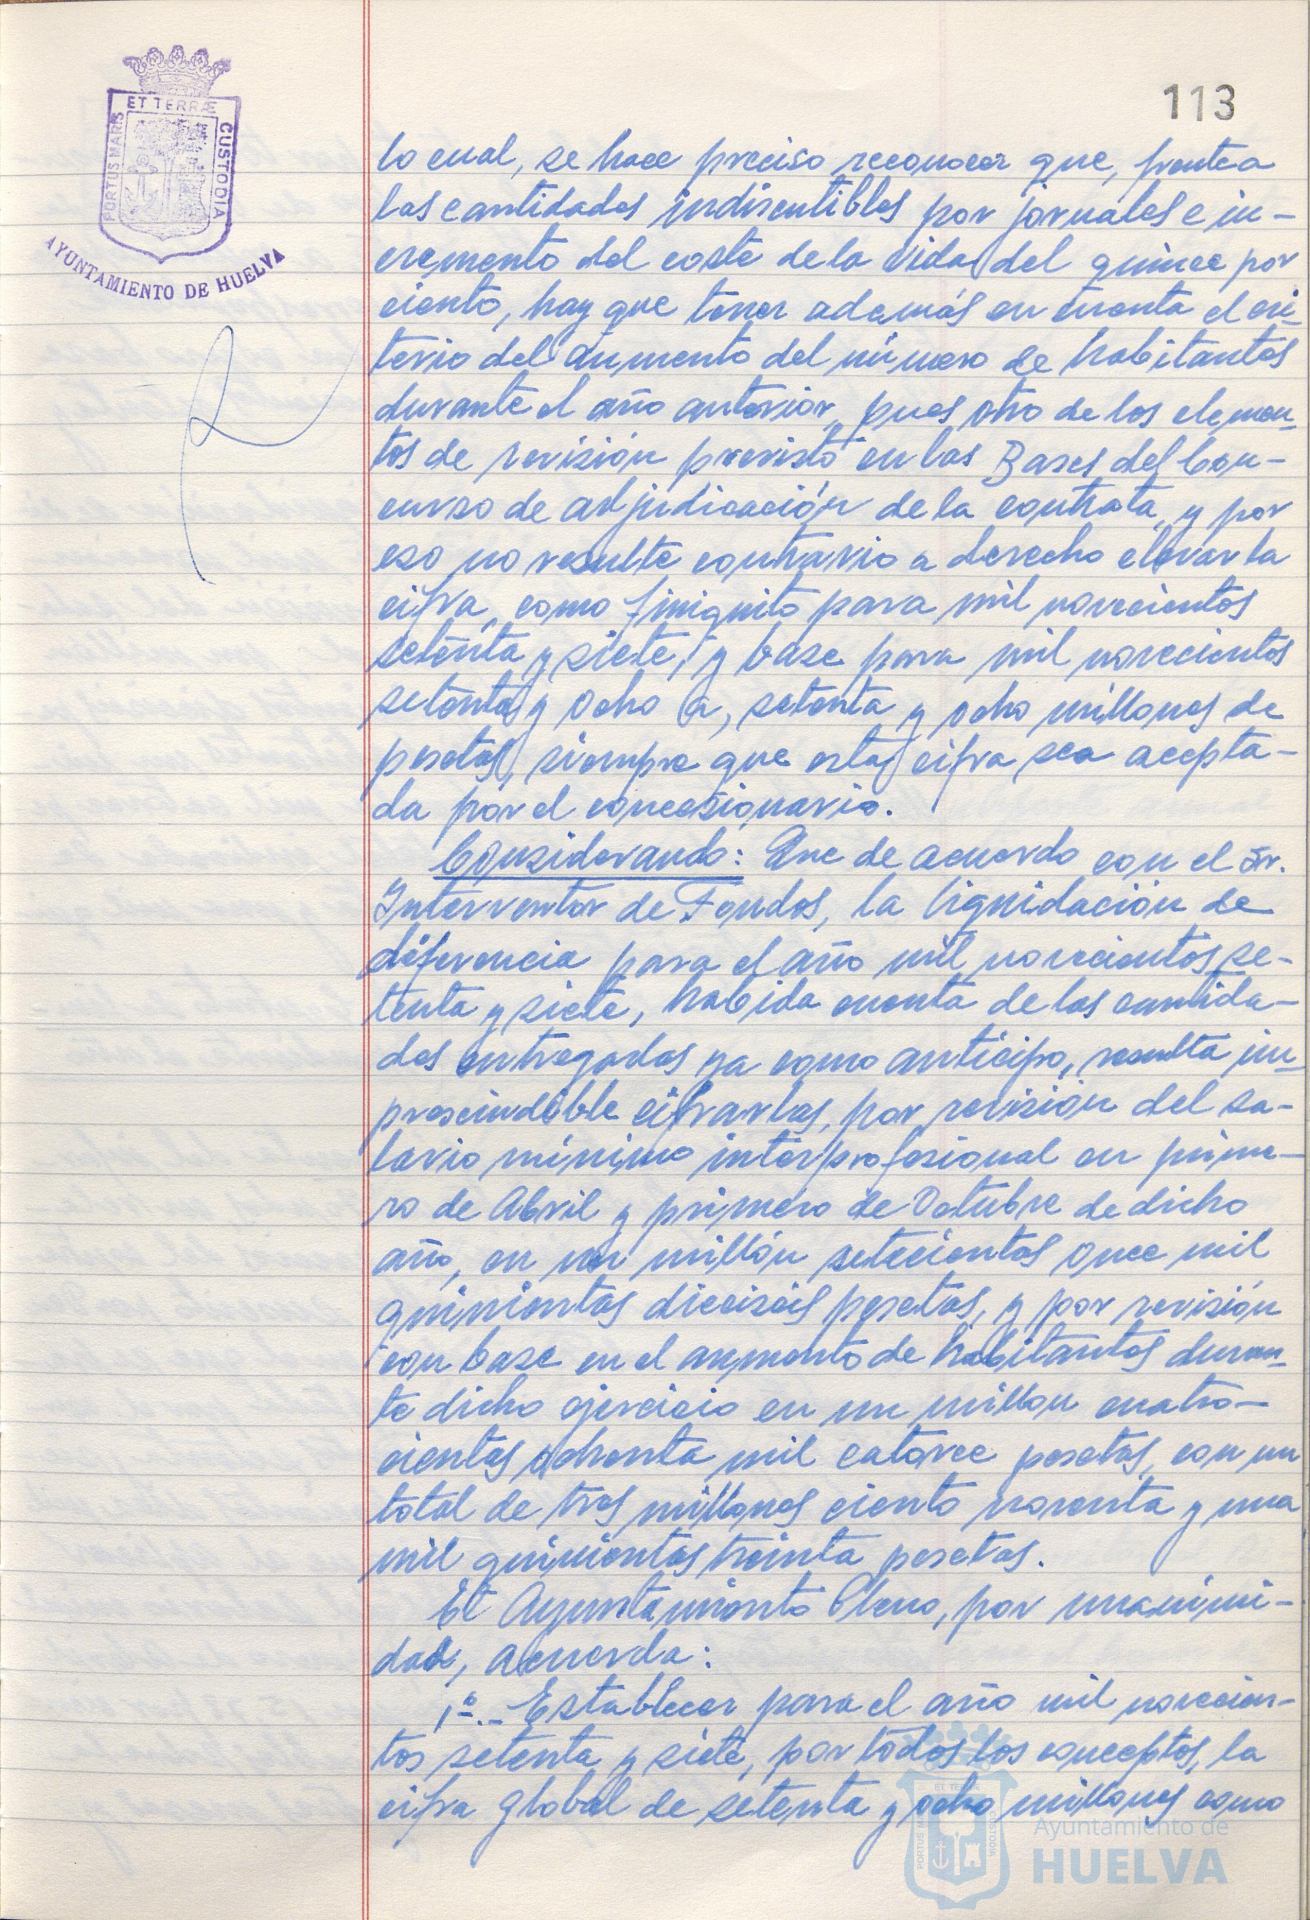 ET TERRÆ
PORTUS MARIS
CUSTODIA
AYUNTAMIENTO DE HUELVA
113
lo cual, se hace preciso reconocer que, frente a
las cantidades indiscutibles por jornales e in-
cremento del coste de la vida del quince por
ciento, hay que tener además en cuenta el cri-
terio del aumento del número de habitantes
durante el año anterior, pues otro de los elemen-
tos de revisión previsto en las Bases del Con-
curso de adjudicación de la contrata, y por
eso no resulte contrario a derecho elevar la
cifra, como finiquito para mil novecientos
setenta y siete, y base para mil novecientos
setenta y ocho a, setenta y ocho millones de
pesetas, siempre que esta cifra sea acepta-
da por el concesionario.
Considerando: Que de acuerdo con el Sr.
Interventor de Fondos, la liquidación de
diferencia para el año mil novecientos se-
tenta y siete, habida cuenta de las cantida-
des entregadas ya como anticipo, resulta im-
prescindible cifrarlas, por revisión del sa-
lario mínimo interprofesional en prime-
ro de Abril y primero de Octubre de dicho
año, en un millón setecientas once mil
quinientas dieciséis pesetas, y por revisión
con base en el aumento de habitantes duran-
te dicho ejercicio en un millon cuatro-
cientas ochenta mil catorce pesetas, con un
total de tres millones ciento noventa y una
mil quinientas treinta pesetas.
El Ayuntamiento Pleno, por unanimi-
dad, acuerda:
1º.- Establecer para el año mil novecien-
tos setenta y siete, por todos los conceptos, la
cifra global de setenta y ocho millones como
Ayuntamiento de
HUELVA